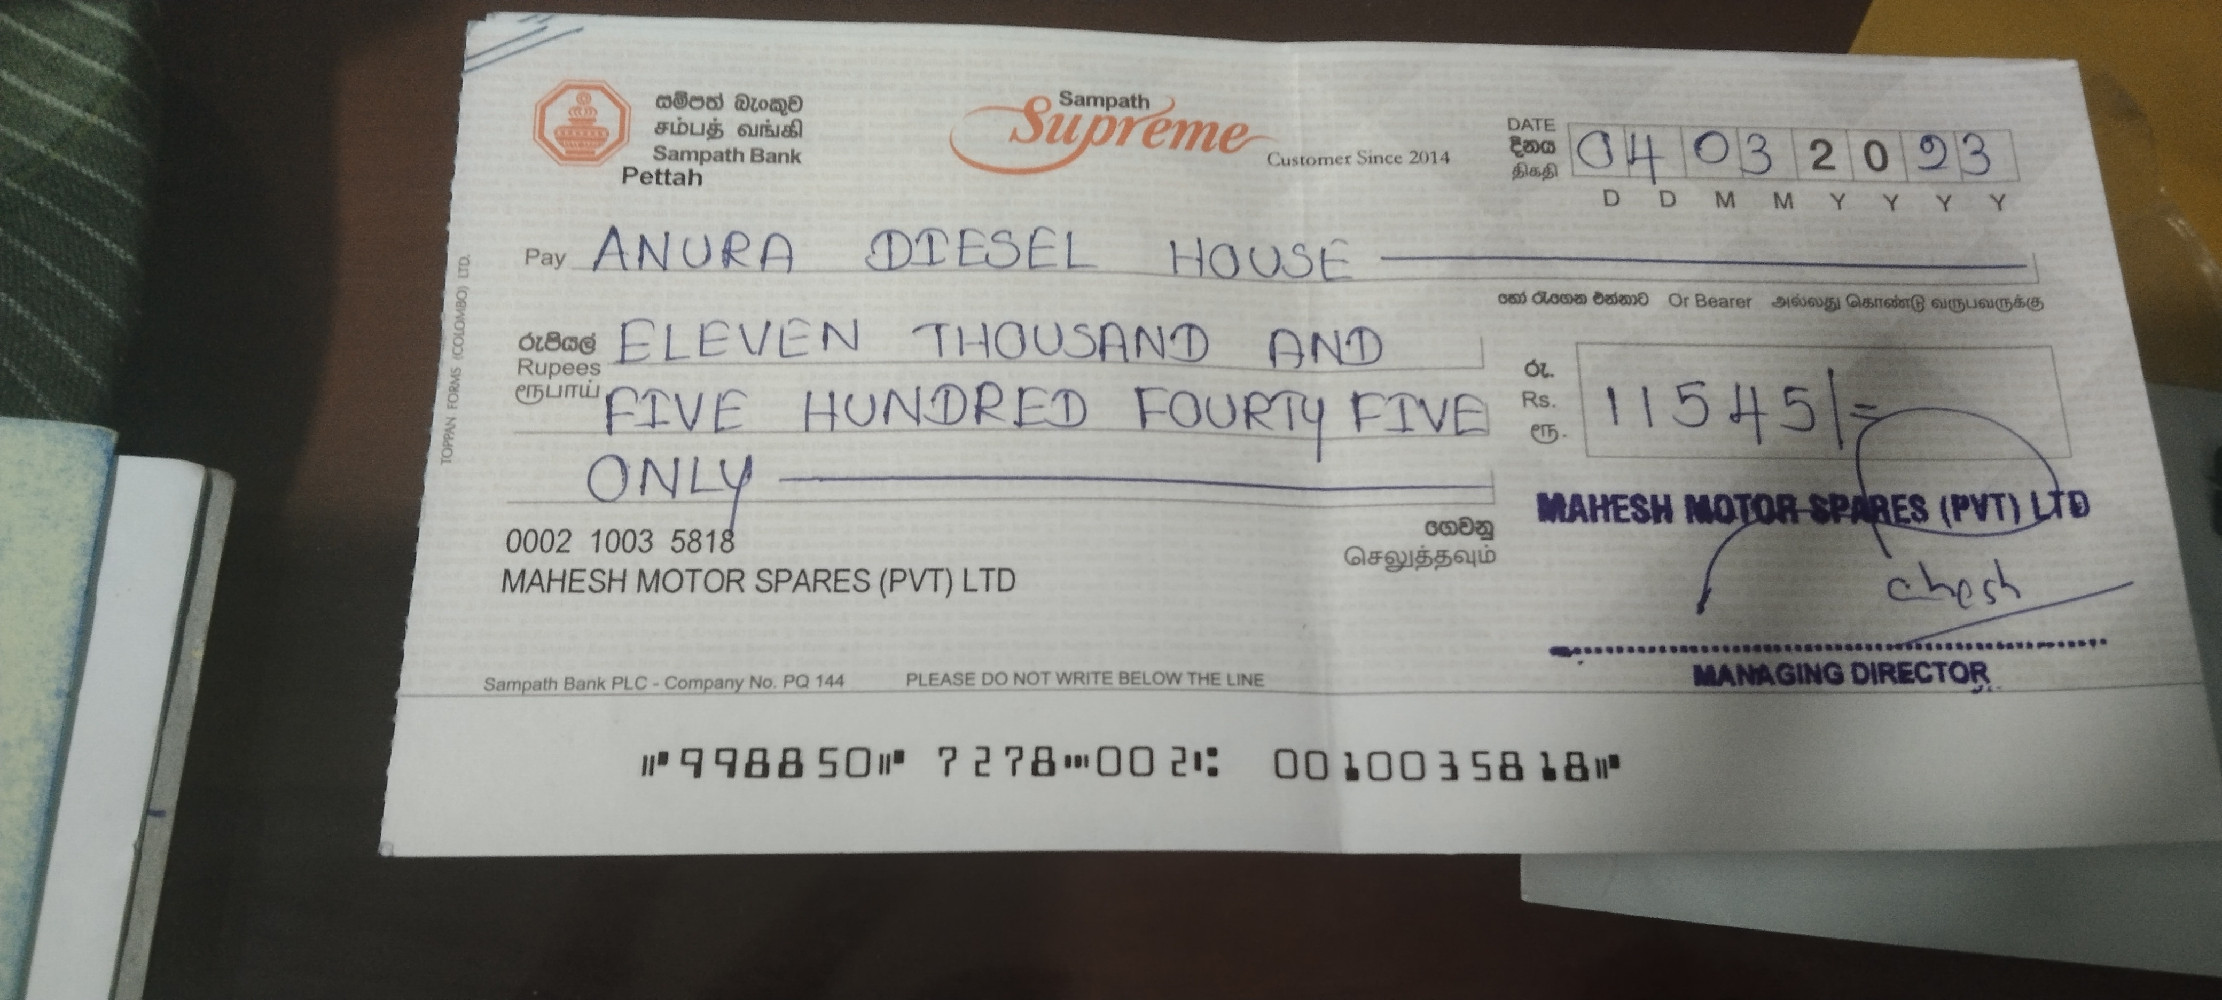 සම්පත් බැංකුව
சம்பத் வங்கி
Sampath Bank
Pettah
Sampath
Supreme
Customer Since 2014
DATE
දිනය
திகதி
04 03 2023
D D M M Y Y Y Y
Pay ANURA DIESEL HOUSE
හෝ රැගෙන එන්නාට Or Bearer அல்லது கொண்டு வருபவருக்கு
රුපියල්
Rupees
ரூபாய்
ELEVEN THOUSAND AND
FIVE HUNDRED FOURTY FIVE
ONLY
රු.
Rs.
ரூ.
11545/=
ගෙවනු
செலுத்தவும்
0002 1003 5818
MAHESH MOTOR SPARES (PVT) LTD
MAHESH MOTOR SPARES (PVT) LTD
MANAGING DIRECTOR
TOPPAN FORMS (COLOMBO) LTD.
Sampath Bank PLC - Company No. PQ 144 PLEASE DO NOT WRITE BELOW THE LINE
⑈998850⑈ 7278⑉002⑆ 0010035818⑈